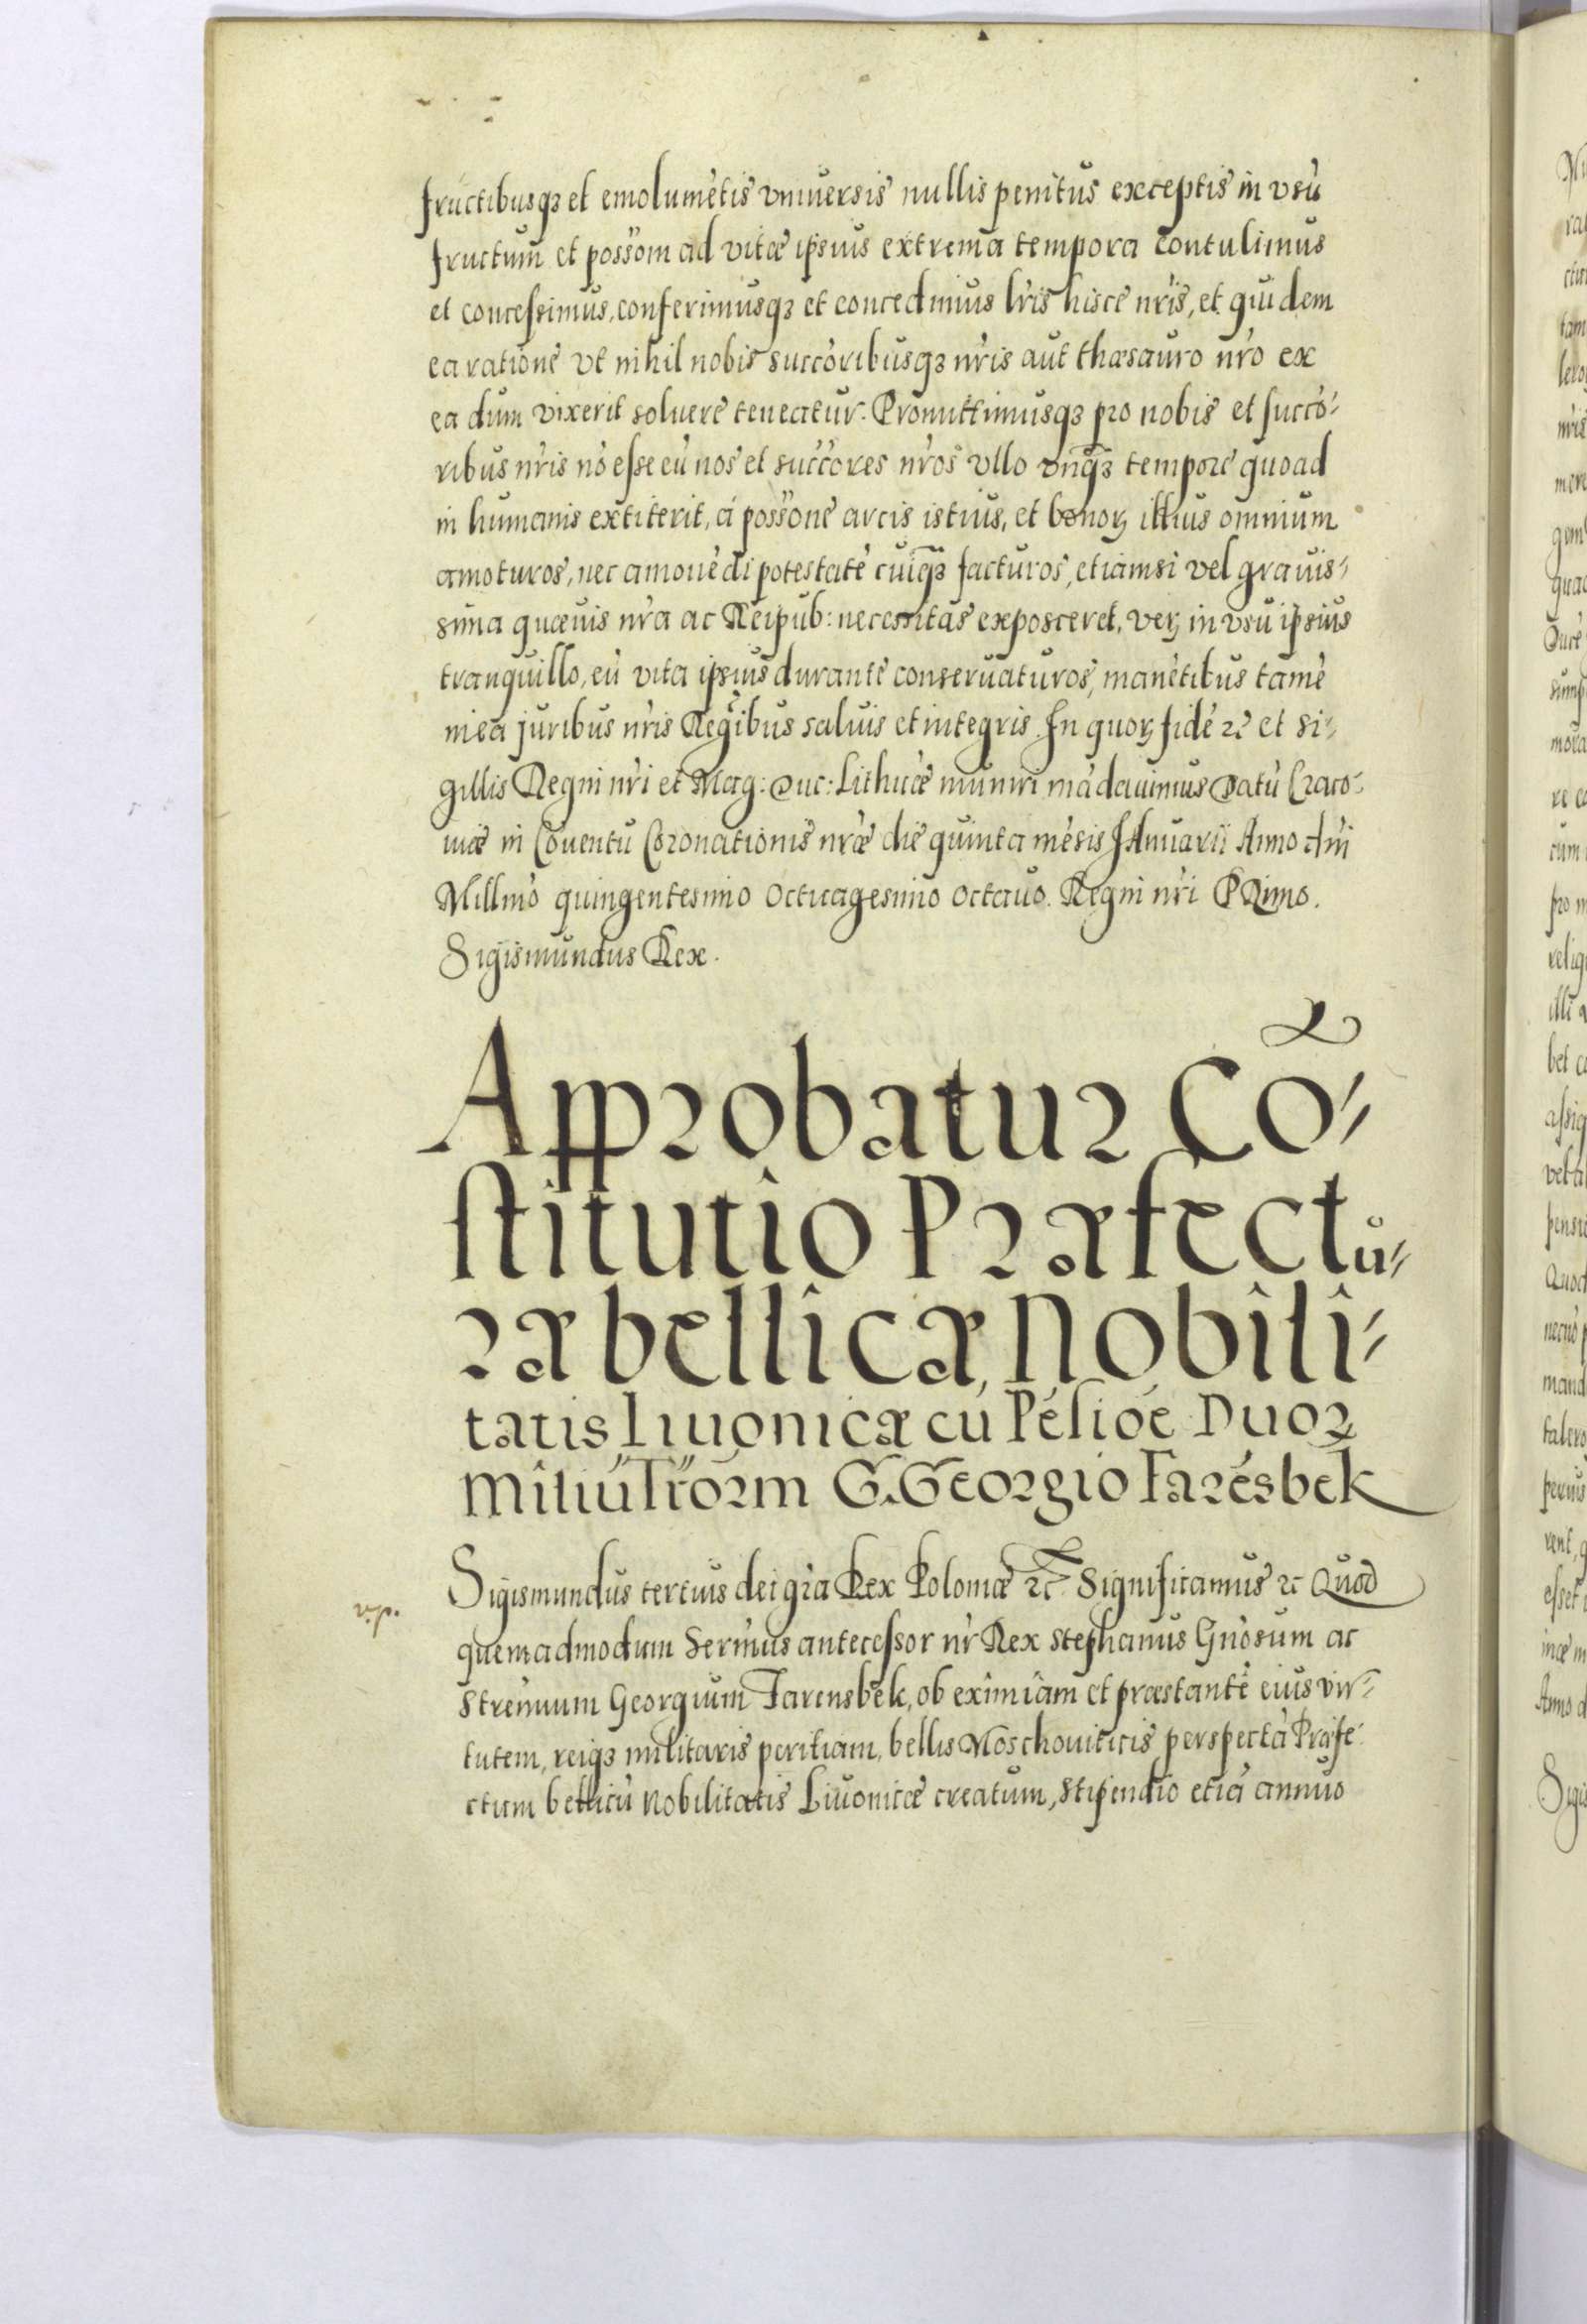 fructibusqȝ et emolumētis vniuersis nullis penitus exceptis in vsū
fructum et possom̃ ad vitæ ipsius extrema tempora contulimus
et concessimus, conferimusqȝ et concedimus lr̃is hisce nr̃is, et quidem
ea ratione vt nihil nobis succōribusqȝ nr̃is aut thæsauro nr̃o ex
ea dum vixerit soluere teneatur. Promittimusqȝ pro nobis et succō-
ribus nr̃is nō esse eū nos et succ̃ores nr̃os vllo vnq̃ȝ tempore quoad
in humanis extiterit, a possõne arcis istius, et bonoꝝ illius omnium
amoturos, nec amouēdi potestatē cuiq̃ȝ facturos, etiamsi vel grauis-
sima quæuis nr̃a ac Reipub: necessitas exposceret, veꝝ in vsu ipsius
tranquillo, eū vita ipsius durante conseruaturos, manētibus tamē
in ea juribus nr̃is Regibus saluis et integris. In quoꝝ fidē ꝛc̃ et si-
gillis Regni nr̃i et Mag: Duc: Lithuæ muniri mādauimus Datū Craco-
uiæ in Cōuentu Coronationis nr̃æ die quinta mēsis JAnuarii Anno dn̄i
Millmō quingentesimo octuagesimo octauo. Regni nr̃i PRimo.
Sigismundus Rex.
Approbatur Cō-
stitutio Præfectu-
ræ bellicæ, Nobili-
tatis Liuonicæ cū Pēsiōe Duoꝝ
Miliū Tr̃orm G. Georgio Farēsbek
Sigismundus tertius dei gr̃a Rex Poloniæ ꝛc̃ Significamus ꝛc Quod
quemadmodum Serm̃us antecessor nr̃ Rex Stephanus Gn̄osum ac
Strenuum Georgium Farensbek, ob eximiam et præstantē eius vir-
tutem, reiqȝ militaris peritiam, bellis Moschouiticis perspectā Præfe-
ctum bellicū Nobilitatis Liuonicæ creatum, stipendio etiā annuo